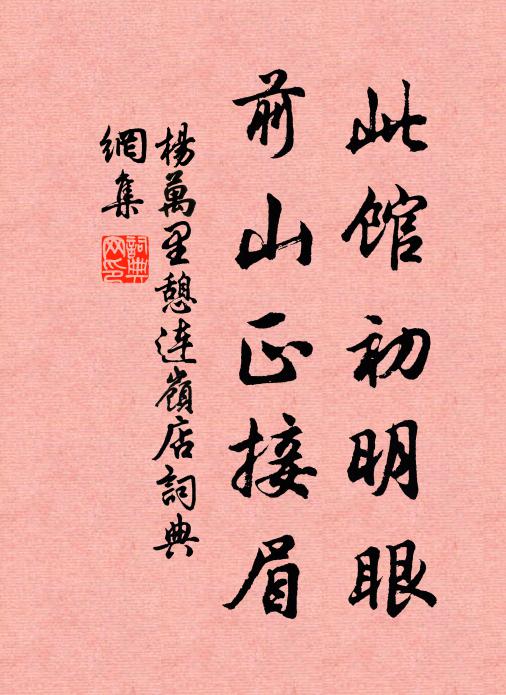 此馆初明眼
前山正接眉
楊萬里憩连嶺店詞典
網集
詞典
网印